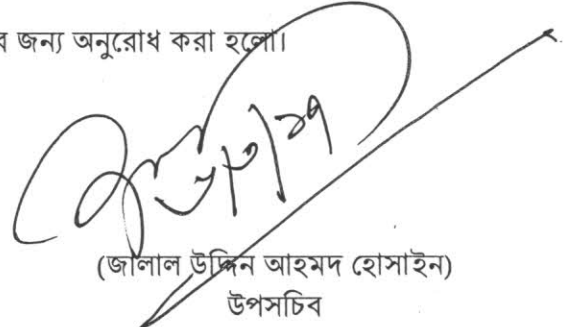 জন্য অনুরোধ করা হলো।
(জালাল উদ্দিন আহমদ হোসাইন)
উপসচিব